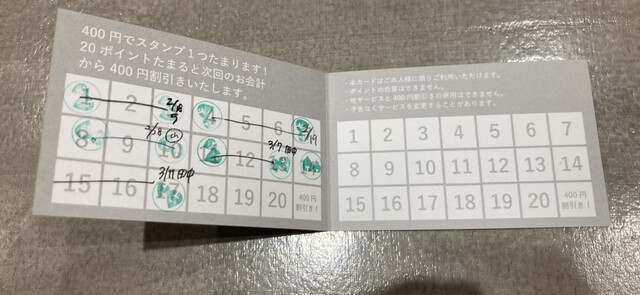 400円でスタンプ1つたまります！
20ポイントたまると次回のお会計
から400円割引きいたします。
1 2 5 6
8 10 12
15 16 17 18 19 20 400円割引き！
2/19
3/7 田中
3/11 田中
・本カードはご本人様に限りご利用いただけます。
・ポイントの合算はできません。
・他サービスと400円割引きの併用はできません。
・予告なくサービスを変更することがあります。
1 2 3 4 5 6 7
8 9 10 11 12 13 14
15 16 17 18 19 20 400円割引き！